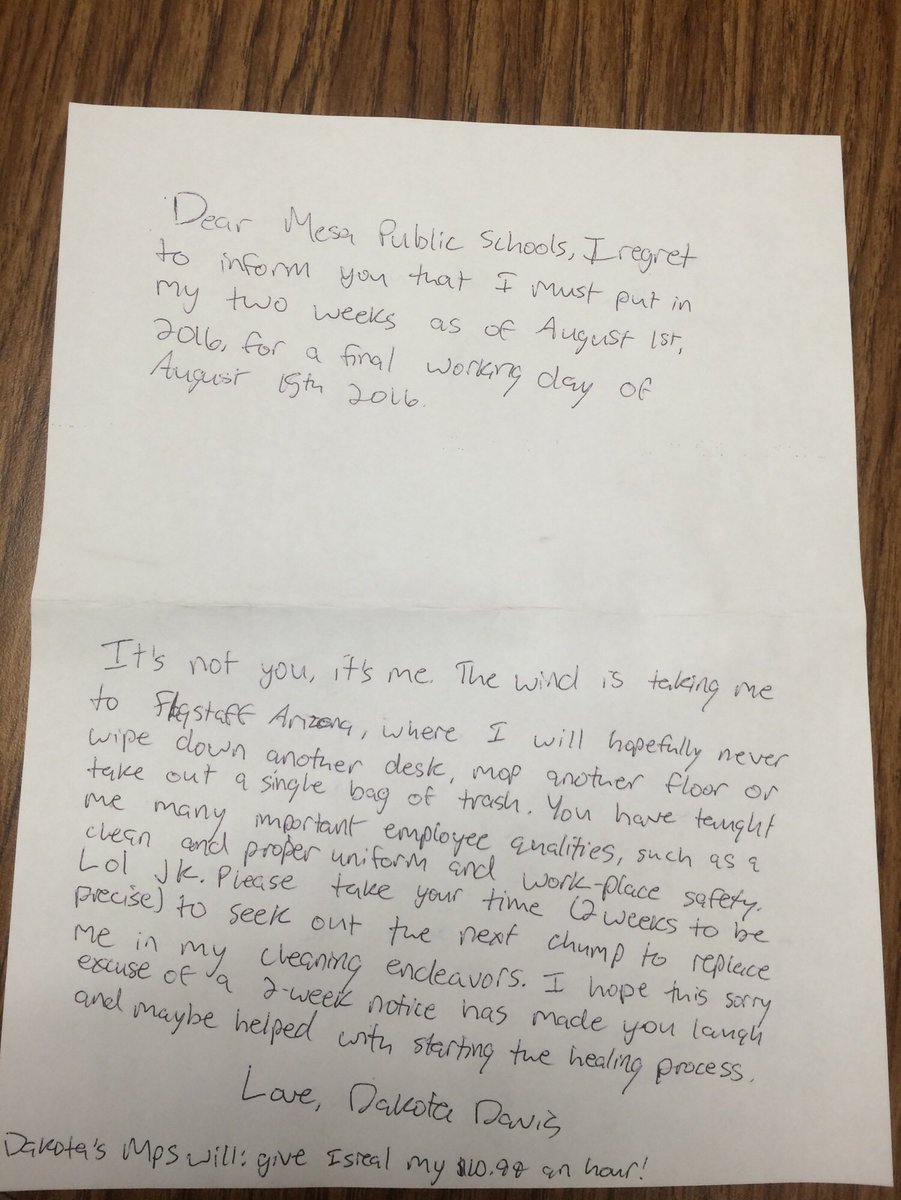 Dear Mesa Public Schools, I regret
to inform you that I must put in
my two weeks as of August 1st,
2016, for a final working day of
August 15th 2016.
It's not you, it's me. The wind is taking me
to Flagstaff Arizona, where I will hopefully never
wipe down another desk, mop another floor or
take out a single bag of trash. You have taught
me many important employee qualities, such as a
clean and proper uniform and work-place safety.
Lol jk. Please take your time (2 weeks to be
precise) to seek out the next chump to replace
me in my cleaning endeavors. I hope this sorry
excuse of a 2-week notice has made you laugh
and maybe helped with starting the healing process.
Love, Dakota Davis
Dakota's MPS will: give Isreal my an hour!